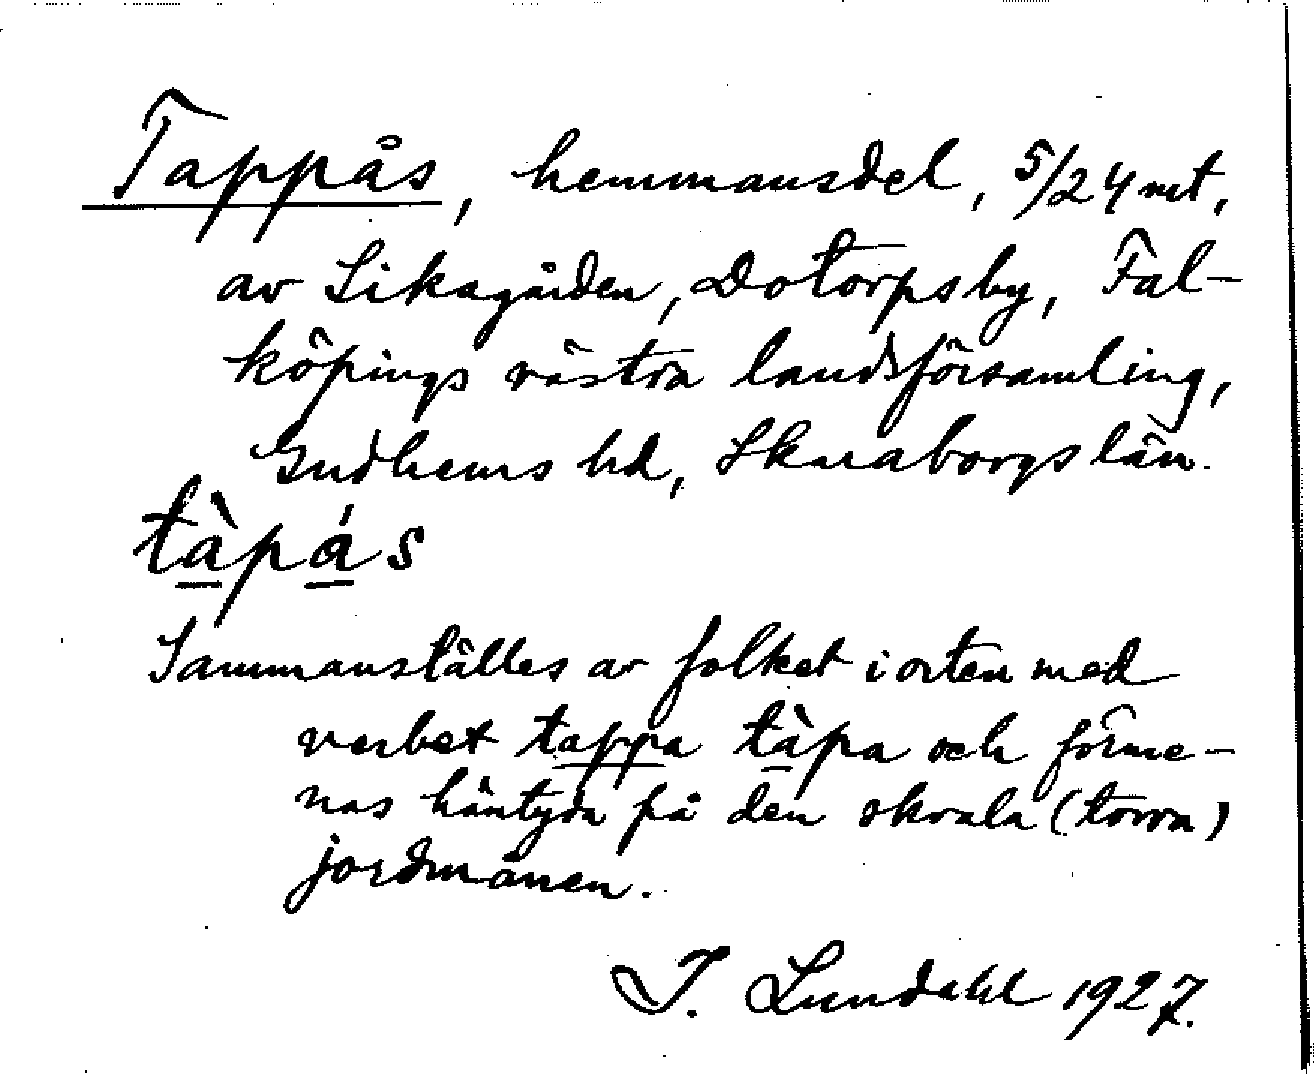 Tappås, hemmansdel, 5/24 mt,
av Sikagården, Dotorpsby, Fal-
köpings västra landsförsamling,
Gudhems hd, Skaraborgs län.
tàpás
Sammanställes av folket i orten med
verbet tappa tàpa och förme-
nas häntyda på den skrala (torra)
jordmånen.
I. Lundahl 1927.